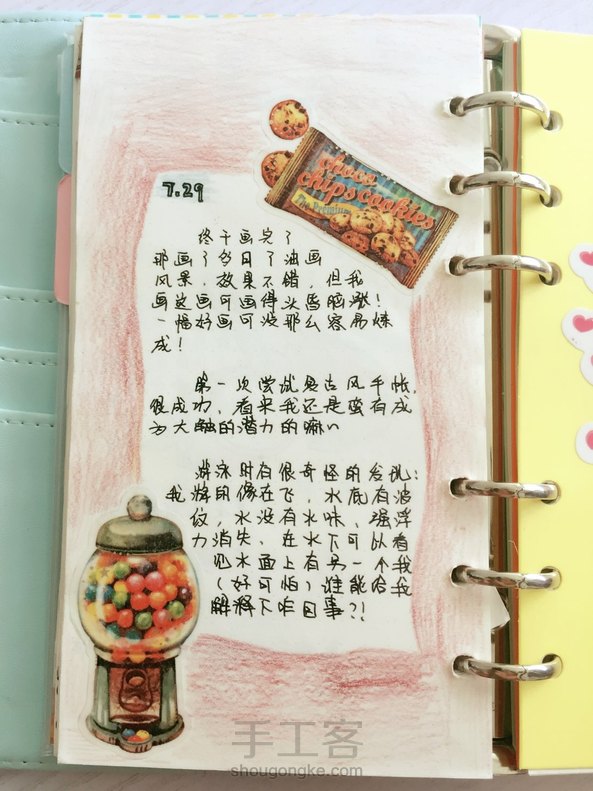 choco
chips cookies
The Premium
7.29
终于画完了
那画了多日了油画
风景，效果不错，但我
画这画可画得头昏脑涨！
一幅好画可没那么容易炼
成！
第一次尝试复古风手帐，
很成功，看来我还是蛮有成
为大触的潜力的嘛~
游泳时有很奇怪的发现：
我游的像在飞，水底有波
纹，水没有水味，强浮
力消失，在水下可以看
见水面上有另一个我
（好可怕）谁能给我
解释下咋回事？！
手工客
shougongke.com